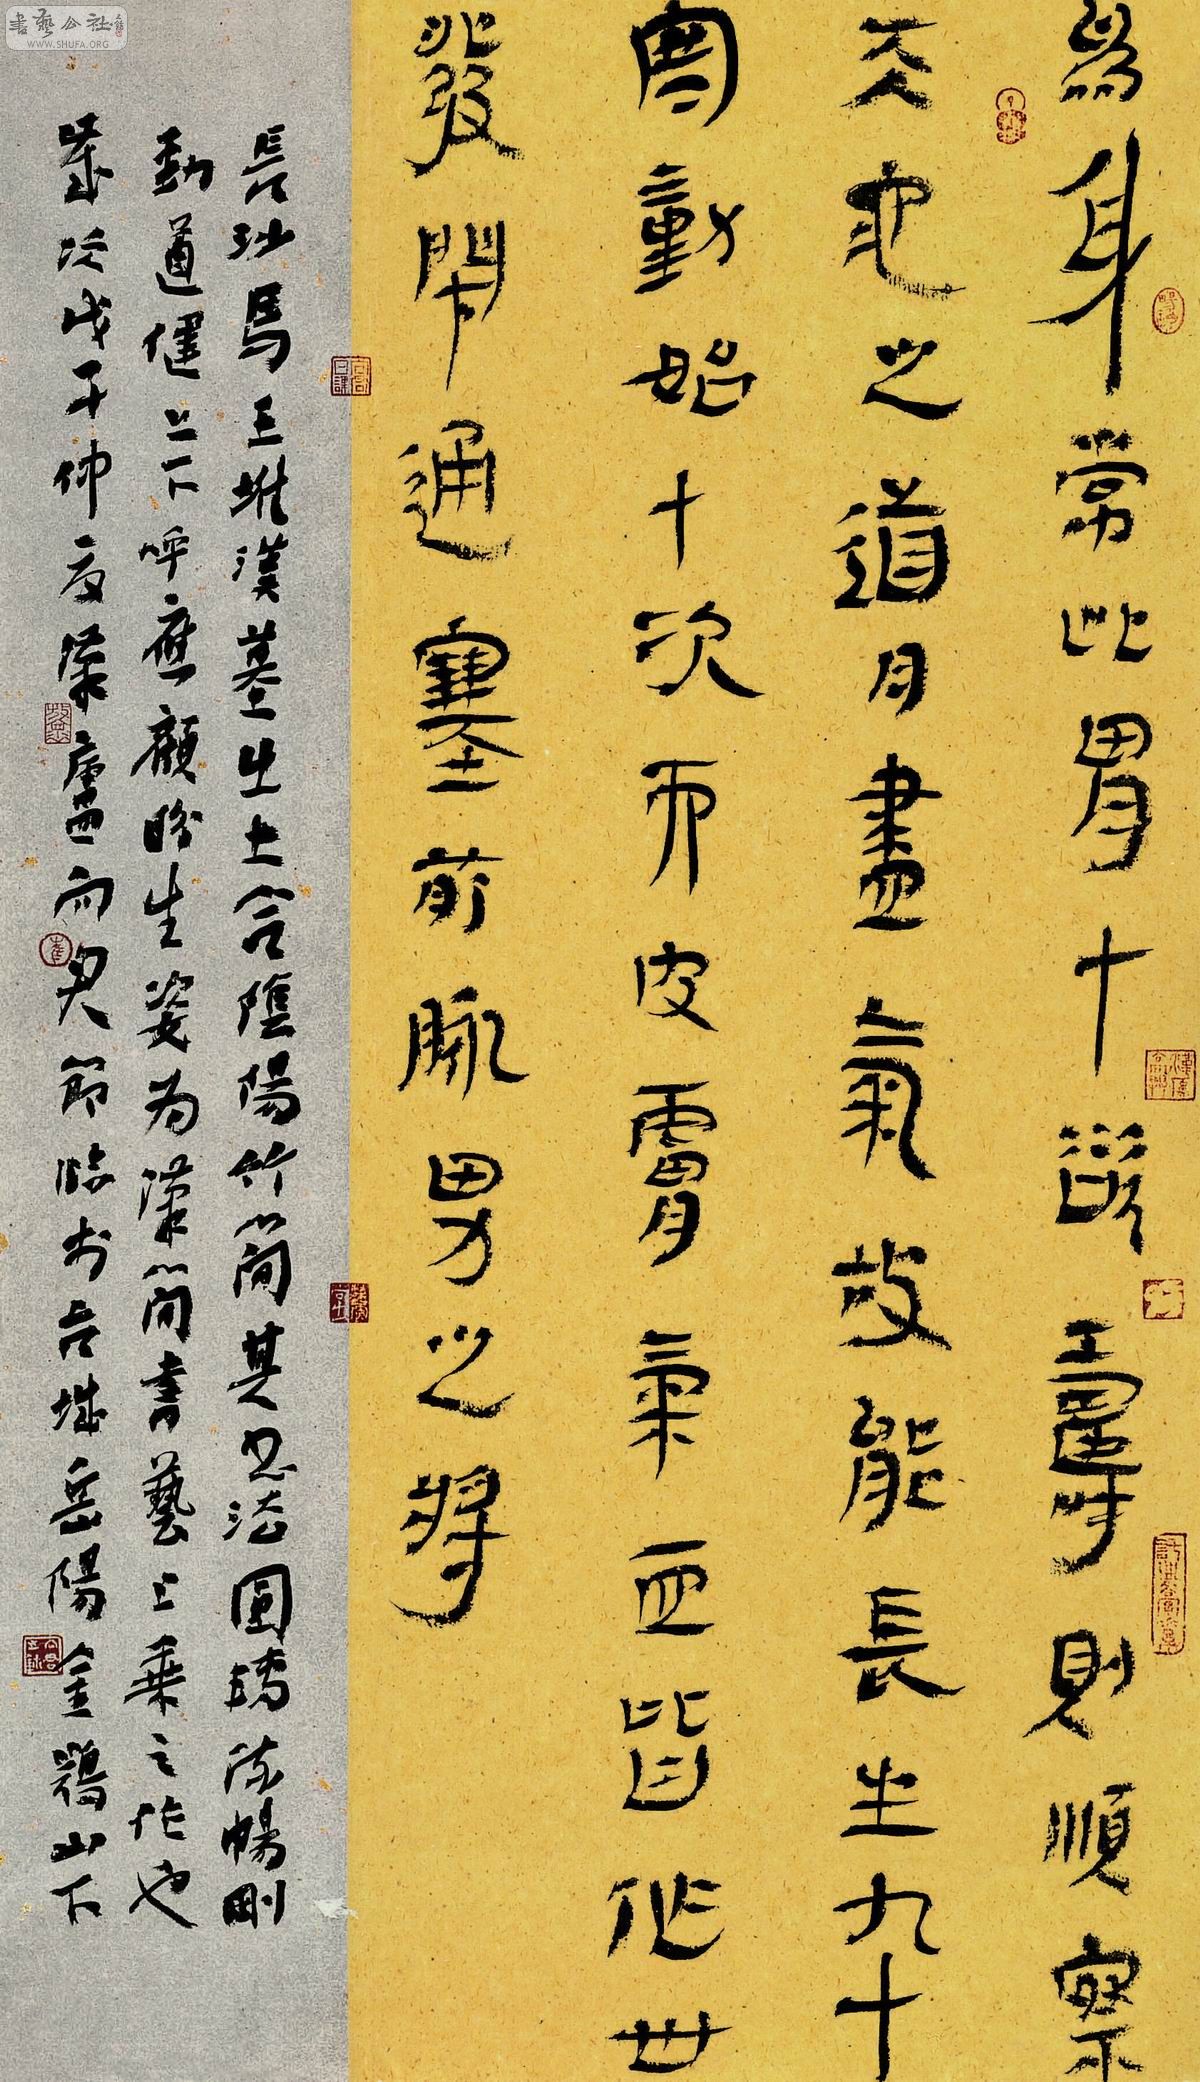 為身常此胃十欲壽則順察
天地之道月盡氣故能長生九十
實動始十次而皮膚氣血皆作世
發閉通塞前脈男之將
長沙馬王堆漢墓出土合陰陽竹簡其書法圓轉流暢剛
勁遒健上下呼應顧盼生姿為漢簡書藝上乘之作也
歲次戊子仲夏漢廬向君節臨於古城岳陽金鶚山下
書藝公社
WWW.SHUFA.ORG